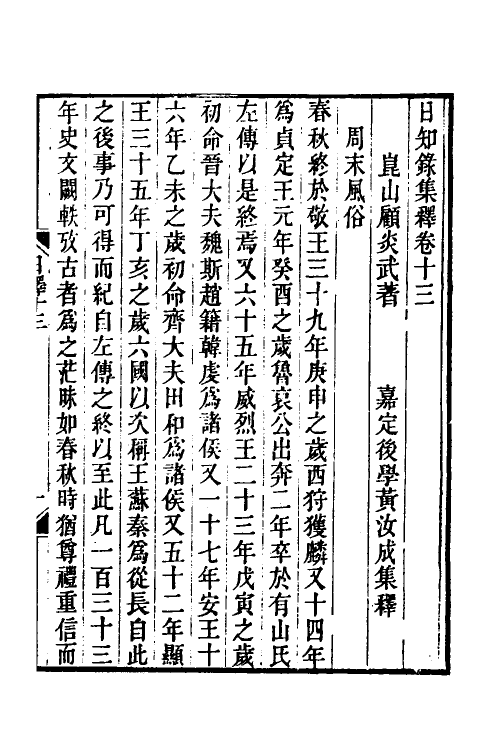 日知錄集釋卷十三
崑山顧炎武著　嘉定後學黃汝成集釋
周末風俗
春秋終於敬王三十九年庚申之歲西狩獲麟又十四年
爲貞定王元年癸酉之歲魯哀公出奔二年卒於有山氏
左傳以是終焉又六十五年威烈王二十三年戊寅之歲
初命晉大夫魏斯趙籍韓虔爲諸侯又一十七年安王十
六年乙未之歲初命齊大夫田和爲諸侯又五十二年顯
王三十五年丁亥之歲六國以次稱王蘇秦爲從長自此
之後事乃可得而紀自左傳之終以至此凡一百三十三
年史文闕軼攷古者爲之茫昧如春秋時猶尊禮重信而
日釋十三
一